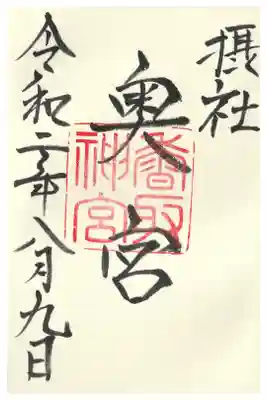 摂社
奥宮
香取神宮
令和二年八月九日